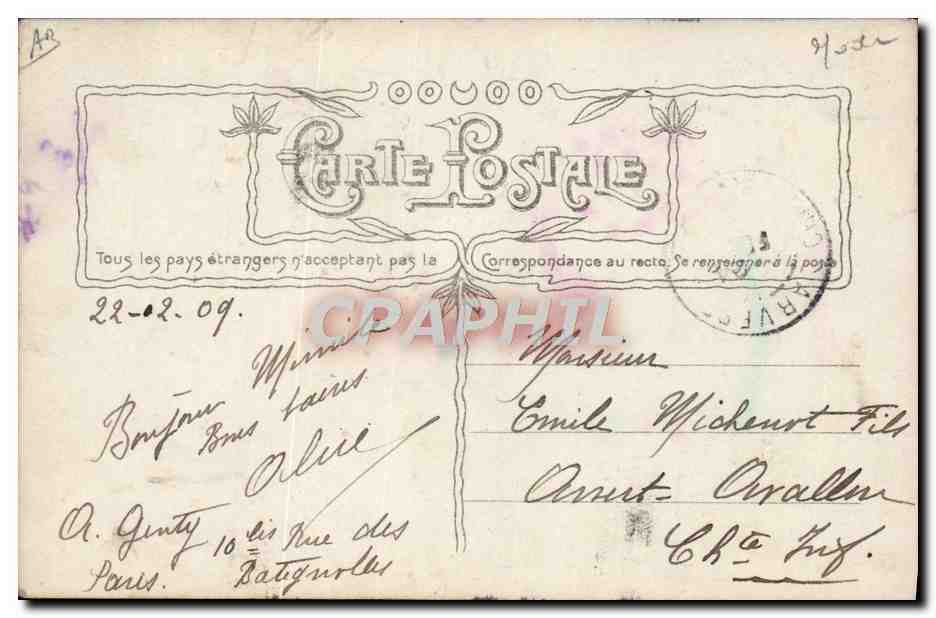 AB
CARTE POSTALE
Tous les pays étrangers n'acceptant pas la Correspondance au recto. Se renseigner à la poste
22-02.09.
CPAPHIL
Bonjour Mimile
Bons baisers
Alice
A. Genty 10 bis Rue des
Paris. Batignolles
Monsieur
Emile Michenot Fils
Arvert-Avallon
Chte Inf.
ARVERT